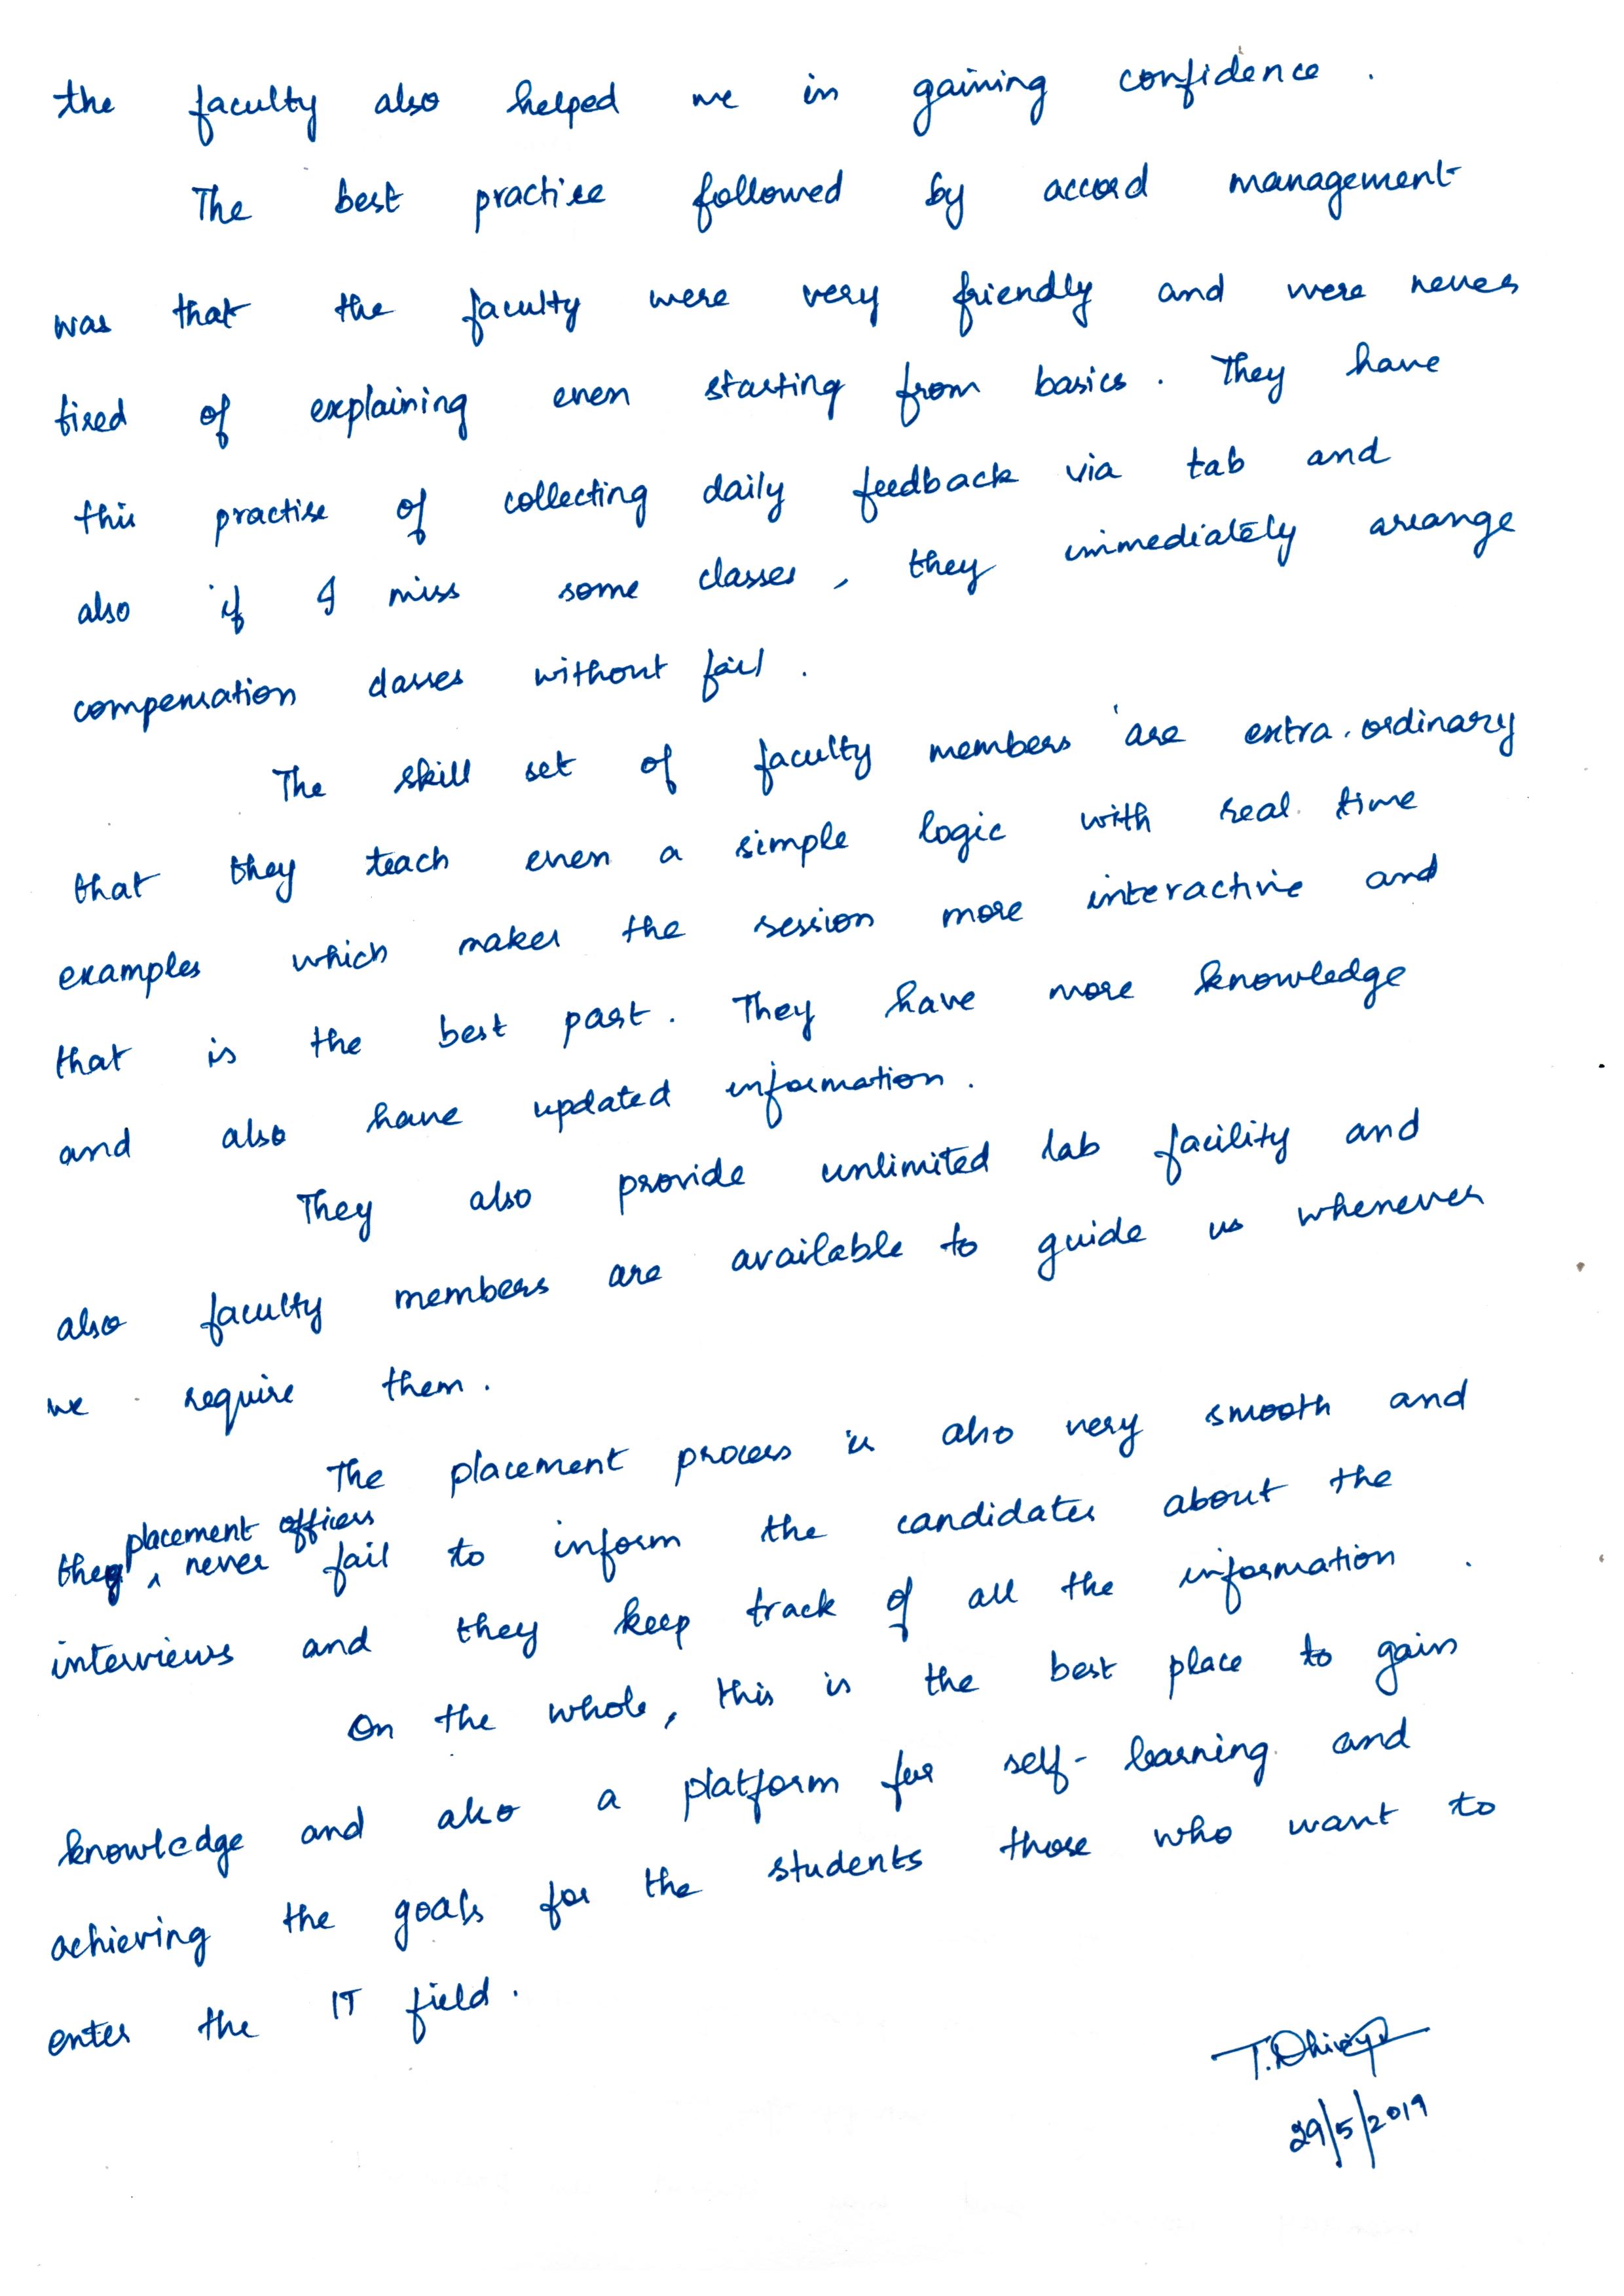 the faculty also helped me in gaining confidence .
The best practise followed by accord management
was that the faculty were very friendly and were never
tired of explaining even starting from basics . They have
this practise of collecting daily feedback via tab and
also if I miss some classes , they immediately arrange
compensation classes without fail .
The skill set of faculty members are extra.ordinary
that they teach even a simple logic with real time
examples which makes the session more interactive and
that is the best part . They have more knowledge
and also have updated information .
They also provide unlimited lab facility and
also faculty members are available to guide us whenever
we require them .
The placement process is also very smooth and
placement officers
they ^ never fail to inform the candidates about the
interviews and they keep track of all the information .
On the whole , this is the best place to gain
knowledge and also a platform for self-learning and
achieving the goals for the students those who want to
enter the IT field .
T.Dhivya
29/5/2019